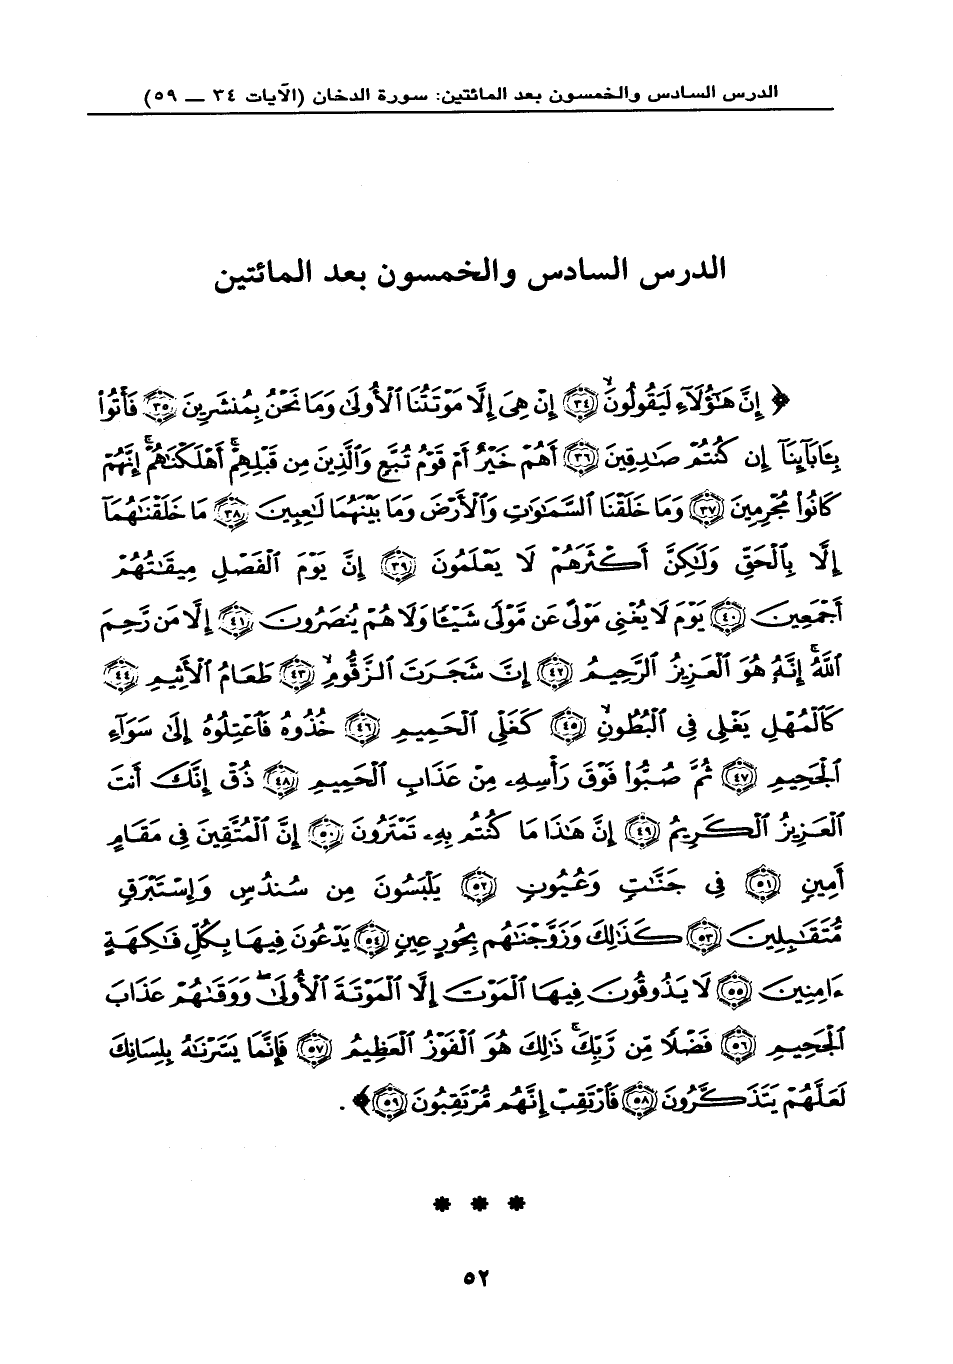 الدرس السادس والخمسون بعد المائتين: سورة الدخان (الآيات ٣٤ ــ ٥٩)
الدرس السادس والخمسون بعد المائتين
﴿ إِنَّ هَٰٓؤُلَآءِ لَيَقُولُونَۙ ٣٤ إِنْ هِىَ إِلَّا مَوْتَتُنَا ٱلْأُولَىٰ وَمَا نَحْنُ بِمُنشَرِينَ ٣٥ فَأْتُوا۟
بِـَٔابَآئِنَآ إِن كُنتُمْ صَٰدِقِينَ ٣٦ أَهُمْ خَيْرٌ أَمْ قَوْمُ تُبَّعٍ وَٱلَّذِينَ مِن قَبْلِهِمْۚ أَهْلَكْنَٰهُمْۚ إِنَّهُمْ
كَانُوا۟ مُجْرِمِينَ ٣٧ وَمَا خَلَقْنَا ٱلسَّمَٰوَٰتِ وَٱلْأَرْضَ وَمَا بَيْنَهُمَا لَٰعِبِينَ ٣٨ مَا خَلَقْنَٰهُمَآ
إِلَّا بِٱلْحَقِّ وَلَٰكِنَّ أَكْثَرَهُمْ لَا يَعْلَمُونَ ٣٩ إِنَّ يَوْمَ ٱلْفَصْلِ مِيقَٰتُهُمْ
أَجْمَعِينَ ٤٠ يَوْمَ لَا يُغْنِى مَوْلًى عَن مَّوْلًى شَيْـًٔا وَلَا هُمْ يُنصَرُونَ ٤١ إِلَّا مَن رَّحِمَ
ٱللَّهُۚ إِنَّهُۥ هُوَ ٱلْعَزِيزُ ٱلرَّحِيمُ ٤٢ إِنَّ شَجَرَتَ ٱلزَّقُّومِۙ ٤٣ طَعَامُ ٱلْأَثِيمِ ٤٤
كَٱلْمُهْلِ يَغْلِى فِى ٱلْبُطُونِۙ ٤٥ كَغَلْىِ ٱلْحَمِيمِ ٤٦ خُذُوهُ فَٱعْتِلُوهُ إِلَىٰ سَوَآءِ
ٱلْجَحِيمِ ٤٧ ثُمَّ صُبُّوا۟ فَوْقَ رَأْسِهِۦ مِنْ عَذَابِ ٱلْحَمِيمِ ٤٨ ذُقْ إِنَّكَ أَنتَ
ٱلْعَزِيزُ ٱلْكَرِيمُ ٤٩ إِنَّ هَٰذَا مَا كُنتُم بِهِۦ تَمْتَرُونَ ٥٠ إِنَّ ٱلْمُتَّقِينَ فِى مَقَامٍ
أَمِينٍ ٥١ فِى جَنَّٰتٍ وَعُيُونٍ ٥٢ يَلْبَسُونَ مِن سُندُسٍ وَإِسْتَبْرَقٍ
مُّتَقَٰبِلِينَ ٥٣ كَذَٰلِكَ وَزَوَّجْنَٰهُم بِحُورٍ عِينٍ ٥٤ يَدْعُونَ فِيهَا بِكُلِّ فَٰكِهَةٍ
ءَامِنِينَ ٥٥ لَا يَذُوقُونَ فِيهَا ٱلْمَوْتَ إِلَّا ٱلْمَوْتَةَ ٱلْأُولَىٰۖ وَوَقَىٰهُمْ عَذَابَ
ٱلْجَحِيمِ ٥٦ فَضْلًا مِّن رَّبِّكَۚ ذَٰلِكَ هُوَ ٱلْفَوْزُ ٱلْعَظِيمُ ٥٧ فَإِنَّمَا يَسَّرْنَٰهُ بِلِسَانِكَ
لَعَلَّهُمْ يَتَذَكَّرُونَ ٥٨ فَٱرْتَقِبْ إِنَّهُم مُّرْتَقِبُونَ ٥٩﴾.
* * *
٥٢